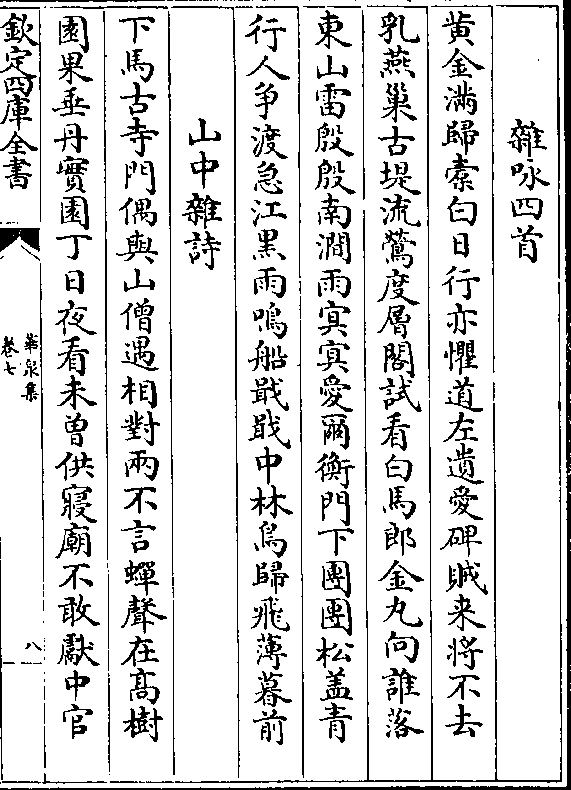 雜咏四首
黄金滿歸橐白日行亦懼道左遺愛碑賊来將不去
乳燕巢古堤流鶯度層閣試看白馬郎金丸向誰落
東山雷殷殷南澗雨寞寞愛爾衡門下團團松盖青
行人争渡急江黒雨鳴船戢戢中林鳥歸飛薄暮前
山中雜詩
下馬古寺門偶與山僧遇相對兩不言蟬聲在髙樹
園果垂丹實園丁日夜看未曽供寢廟不敢獻中官
欽定四庫全書
華泉集
卷七
八